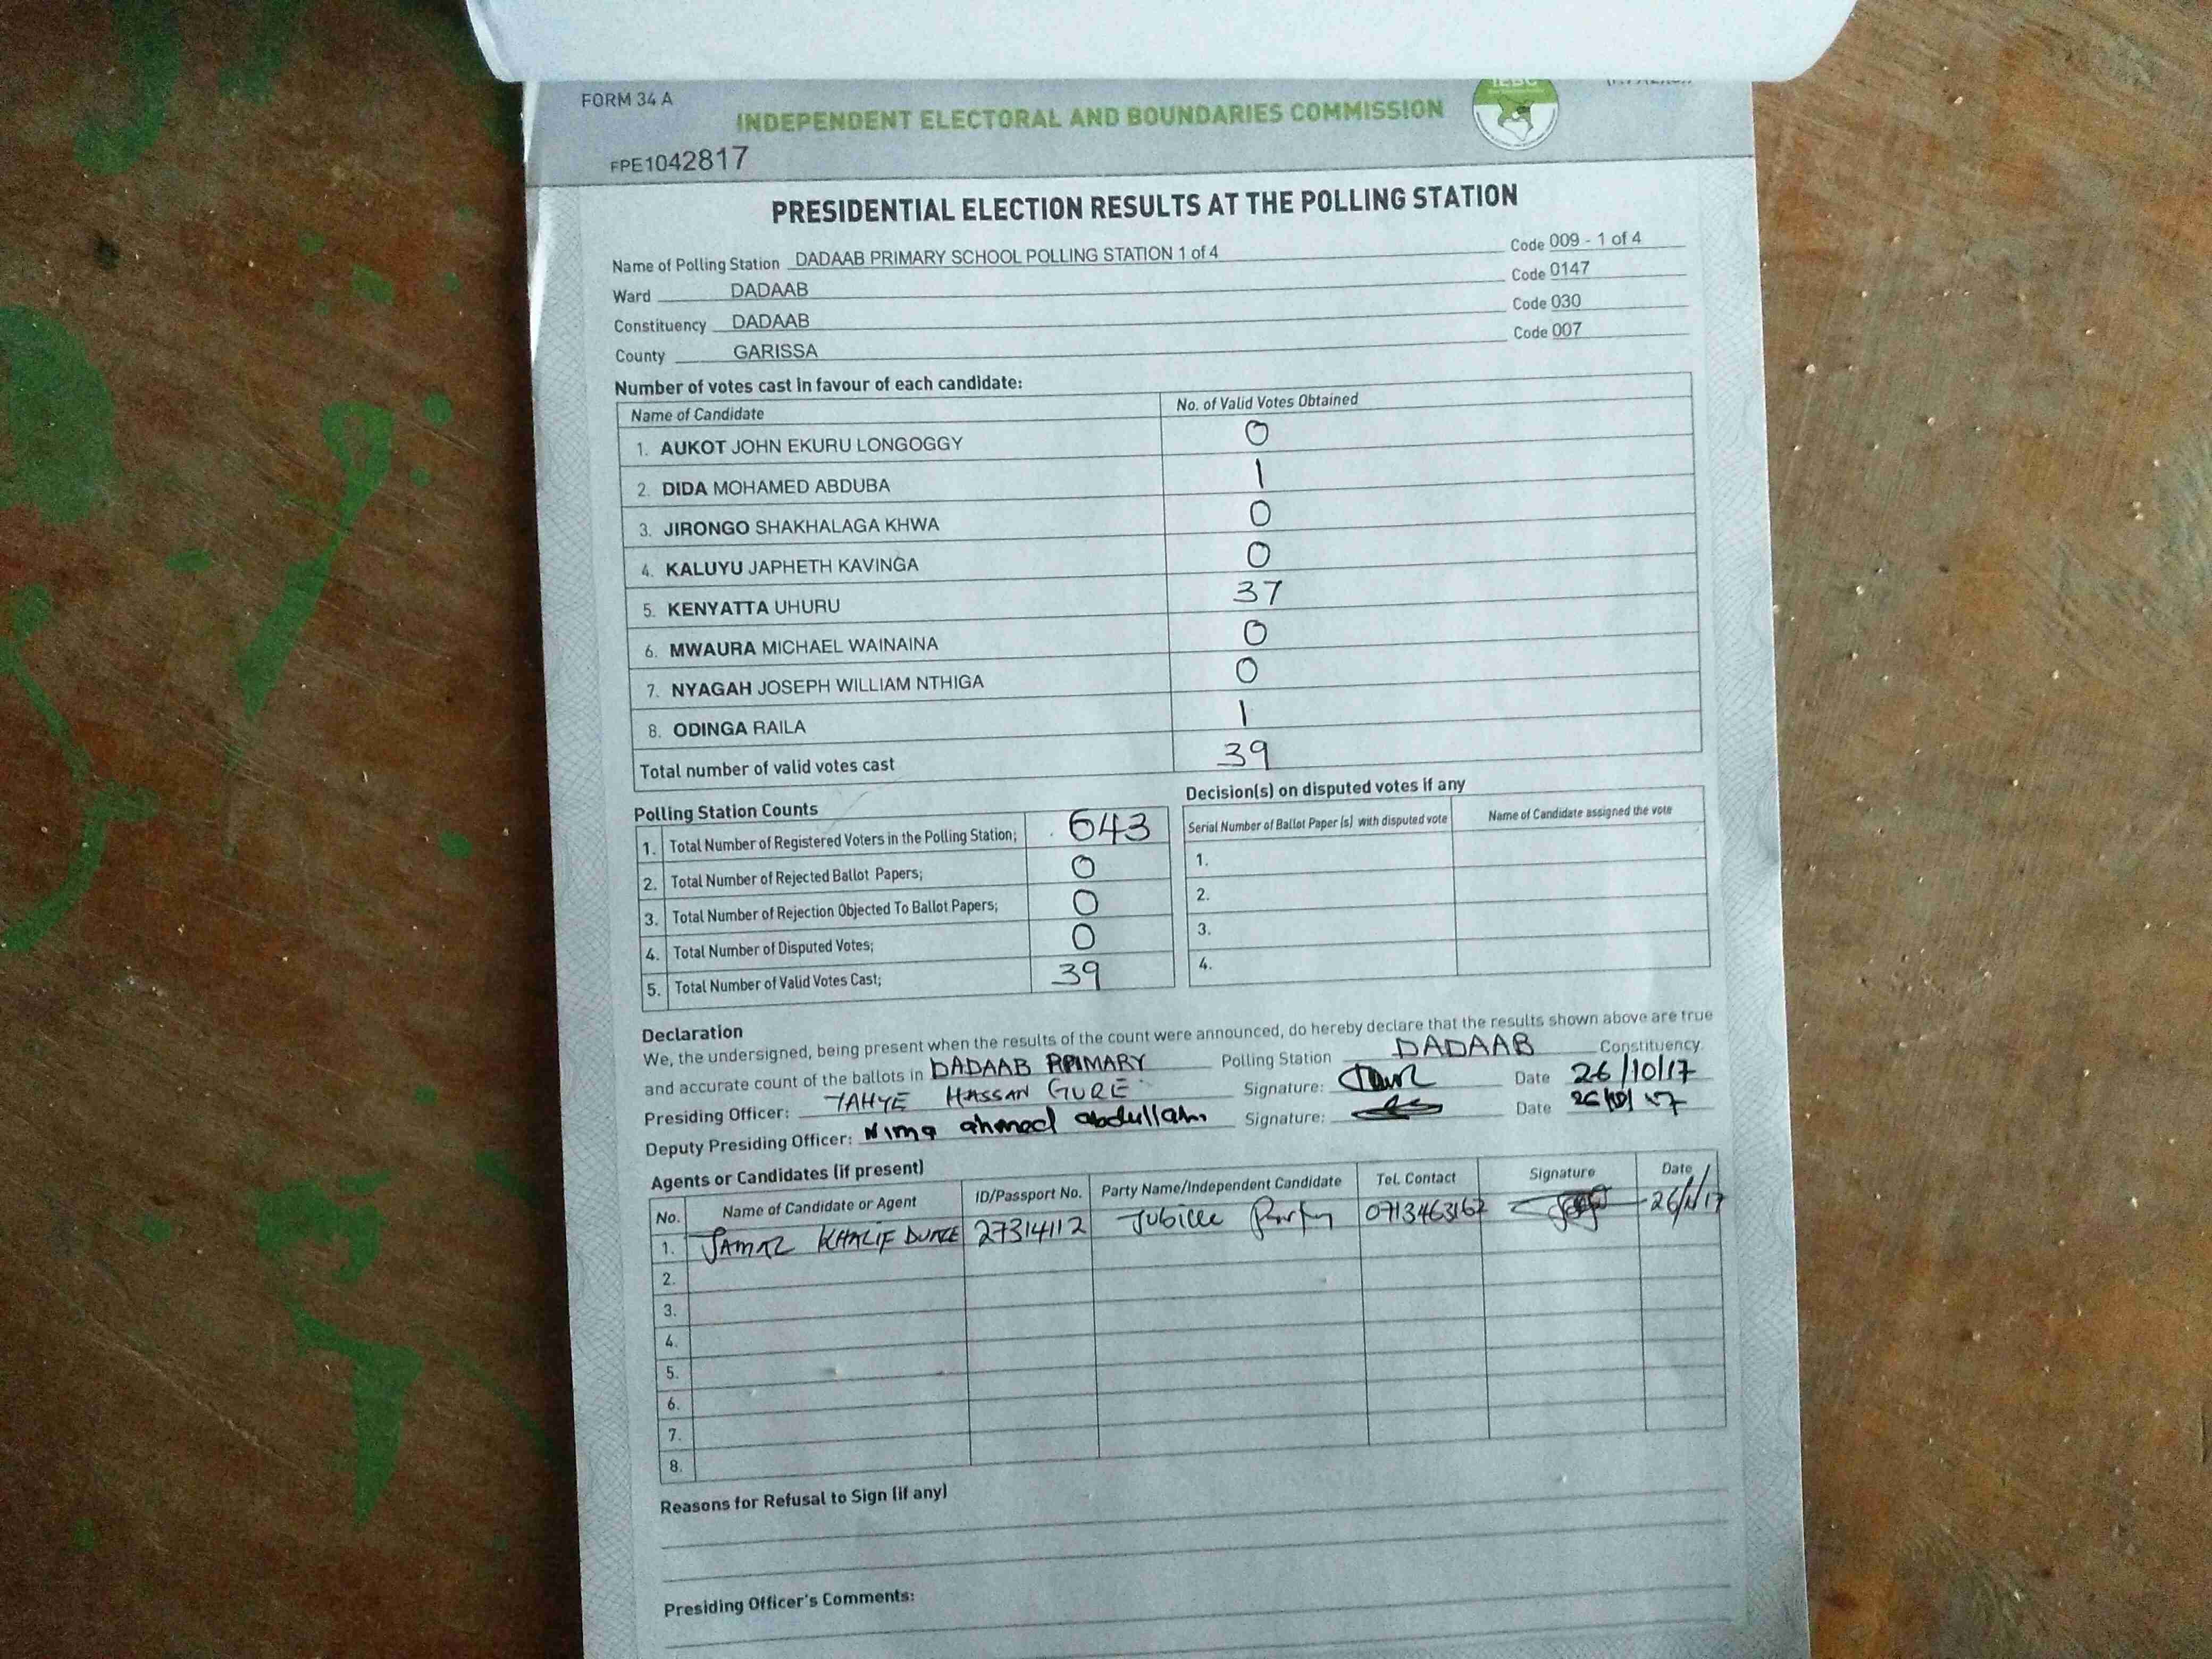 FORM 34 A
INDEPENDENT ELECTORAL AND BOUNDARIES COMMISSION
IEBC
FPE1042817
PRESIDENTIAL ELECTION RESULTS AT THE POLLING STATION
Name of Polling Station DADAAB PRIMARY SCHOOL POLLING STATION 1 of 4 Code 009 - 1 of 4
Ward DADAAB Code 0147
Constituency DADAAB Code 030
County GARISSA Code 007
Number of votes cast in favour of each candidate:
Name of Candidate No. of Valid Votes Obtained
1. AUKOT JOHN EKURU LONGOGGY 0
2. DIDA MOHAMED ABDUBA 1
3. JIRONGO SHAKHALAGA KHWA 0
4. KALUYU JAPHETH KAVINGA 0
5. KENYATTA UHURU 37
6. MWAURA MICHAEL WAINAINA 0
7. NYAGAH JOSEPH WILLIAM NTHIGA 0
8. ODINGA RAILA 1
Total number of valid votes cast 39
Polling Station Counts
1. Total Number of Registered Voters in the Polling Station; 643
2. Total Number of Rejected Ballot Papers; 0
3. Total Number of Rejection Objected To Ballot Papers; 0
4. Total Number of Disputed Votes; 0
5. Total Number of Valid Votes Cast; 39
Decision(s) on disputed votes if any
Serial Number of Ballot Paper (s) with disputed vote Name of Candidate assigned the vote
1.
2.
3.
4.
Declaration
We, the undersigned, being present when the results of the count were announced, do hereby declare that the results shown above are true
and accurate count of the ballots in DADAAB PRIMARY Polling Station DADAAB Constituency.
Presiding Officer: YAHYE HASSAN GURE Signature: Date 26/10/17
Deputy Presiding Officer: Nima ahmed abdullahi Signature: Date 26/10/17
Agents or Candidates (if present)
No. Name of Candidate or Agent ID/Passport No. Party Name/Independent Candidate Tel. Contact Signature Date
1. KHALIF 27314112 Jubilee Party 0713463167
2.
3.
4.
5.
6.
7.
8.
Reasons for Refusal to Sign (if any)
Presiding Officer's Comments: